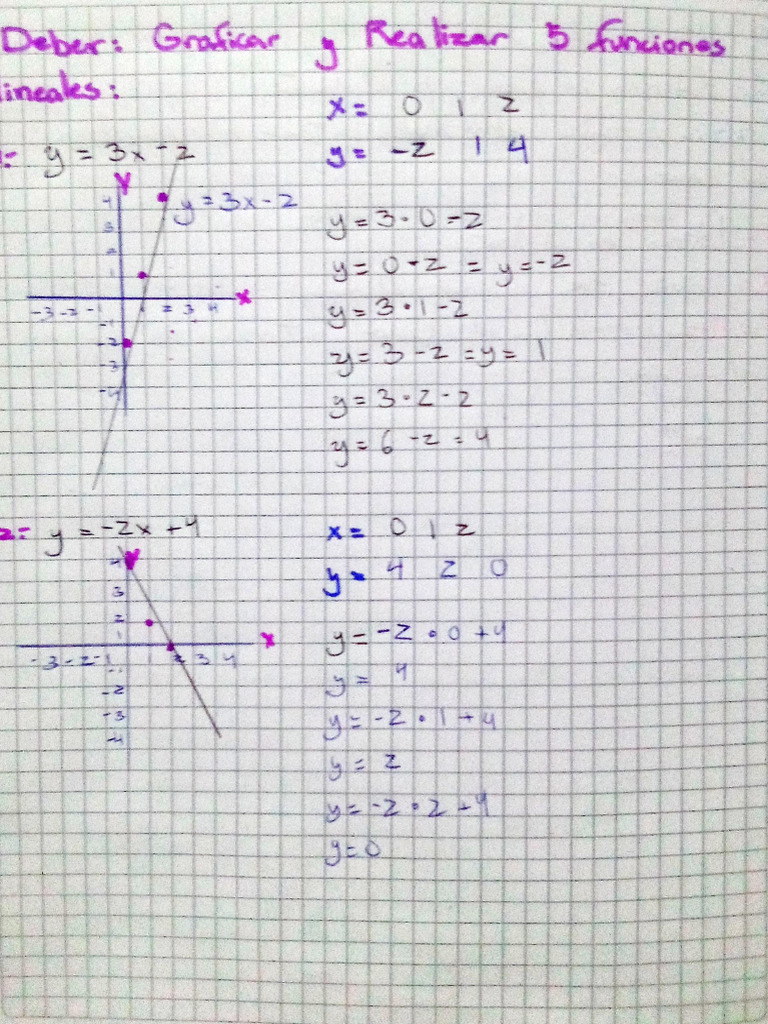 Deber: Graficar y Realizar 5 funciones
lineales:
x= 0 1 2
1= y = 3x -2
y= -2 1 4
Y
4
y=3x-2
3
2
1
y=3·0-2
y= 0-2 = y=-2
-3 -2 -1 1 2 3 4 x
y=3·1-2
-1
-2
y= 3 -2 =y= 1
-3
-4
y= 3·2-2
y= 6 -2 = 4
2= y = -2x +4
x= 0 1 2
Y
4
y= 4 2 0
3
2
1
y= -2·0+4
-3 -2 -1 1 2 3 4 x
y= 4
-2
-3
y= -2·1+4
-4
y= 2
y= -2·2+4
y=0